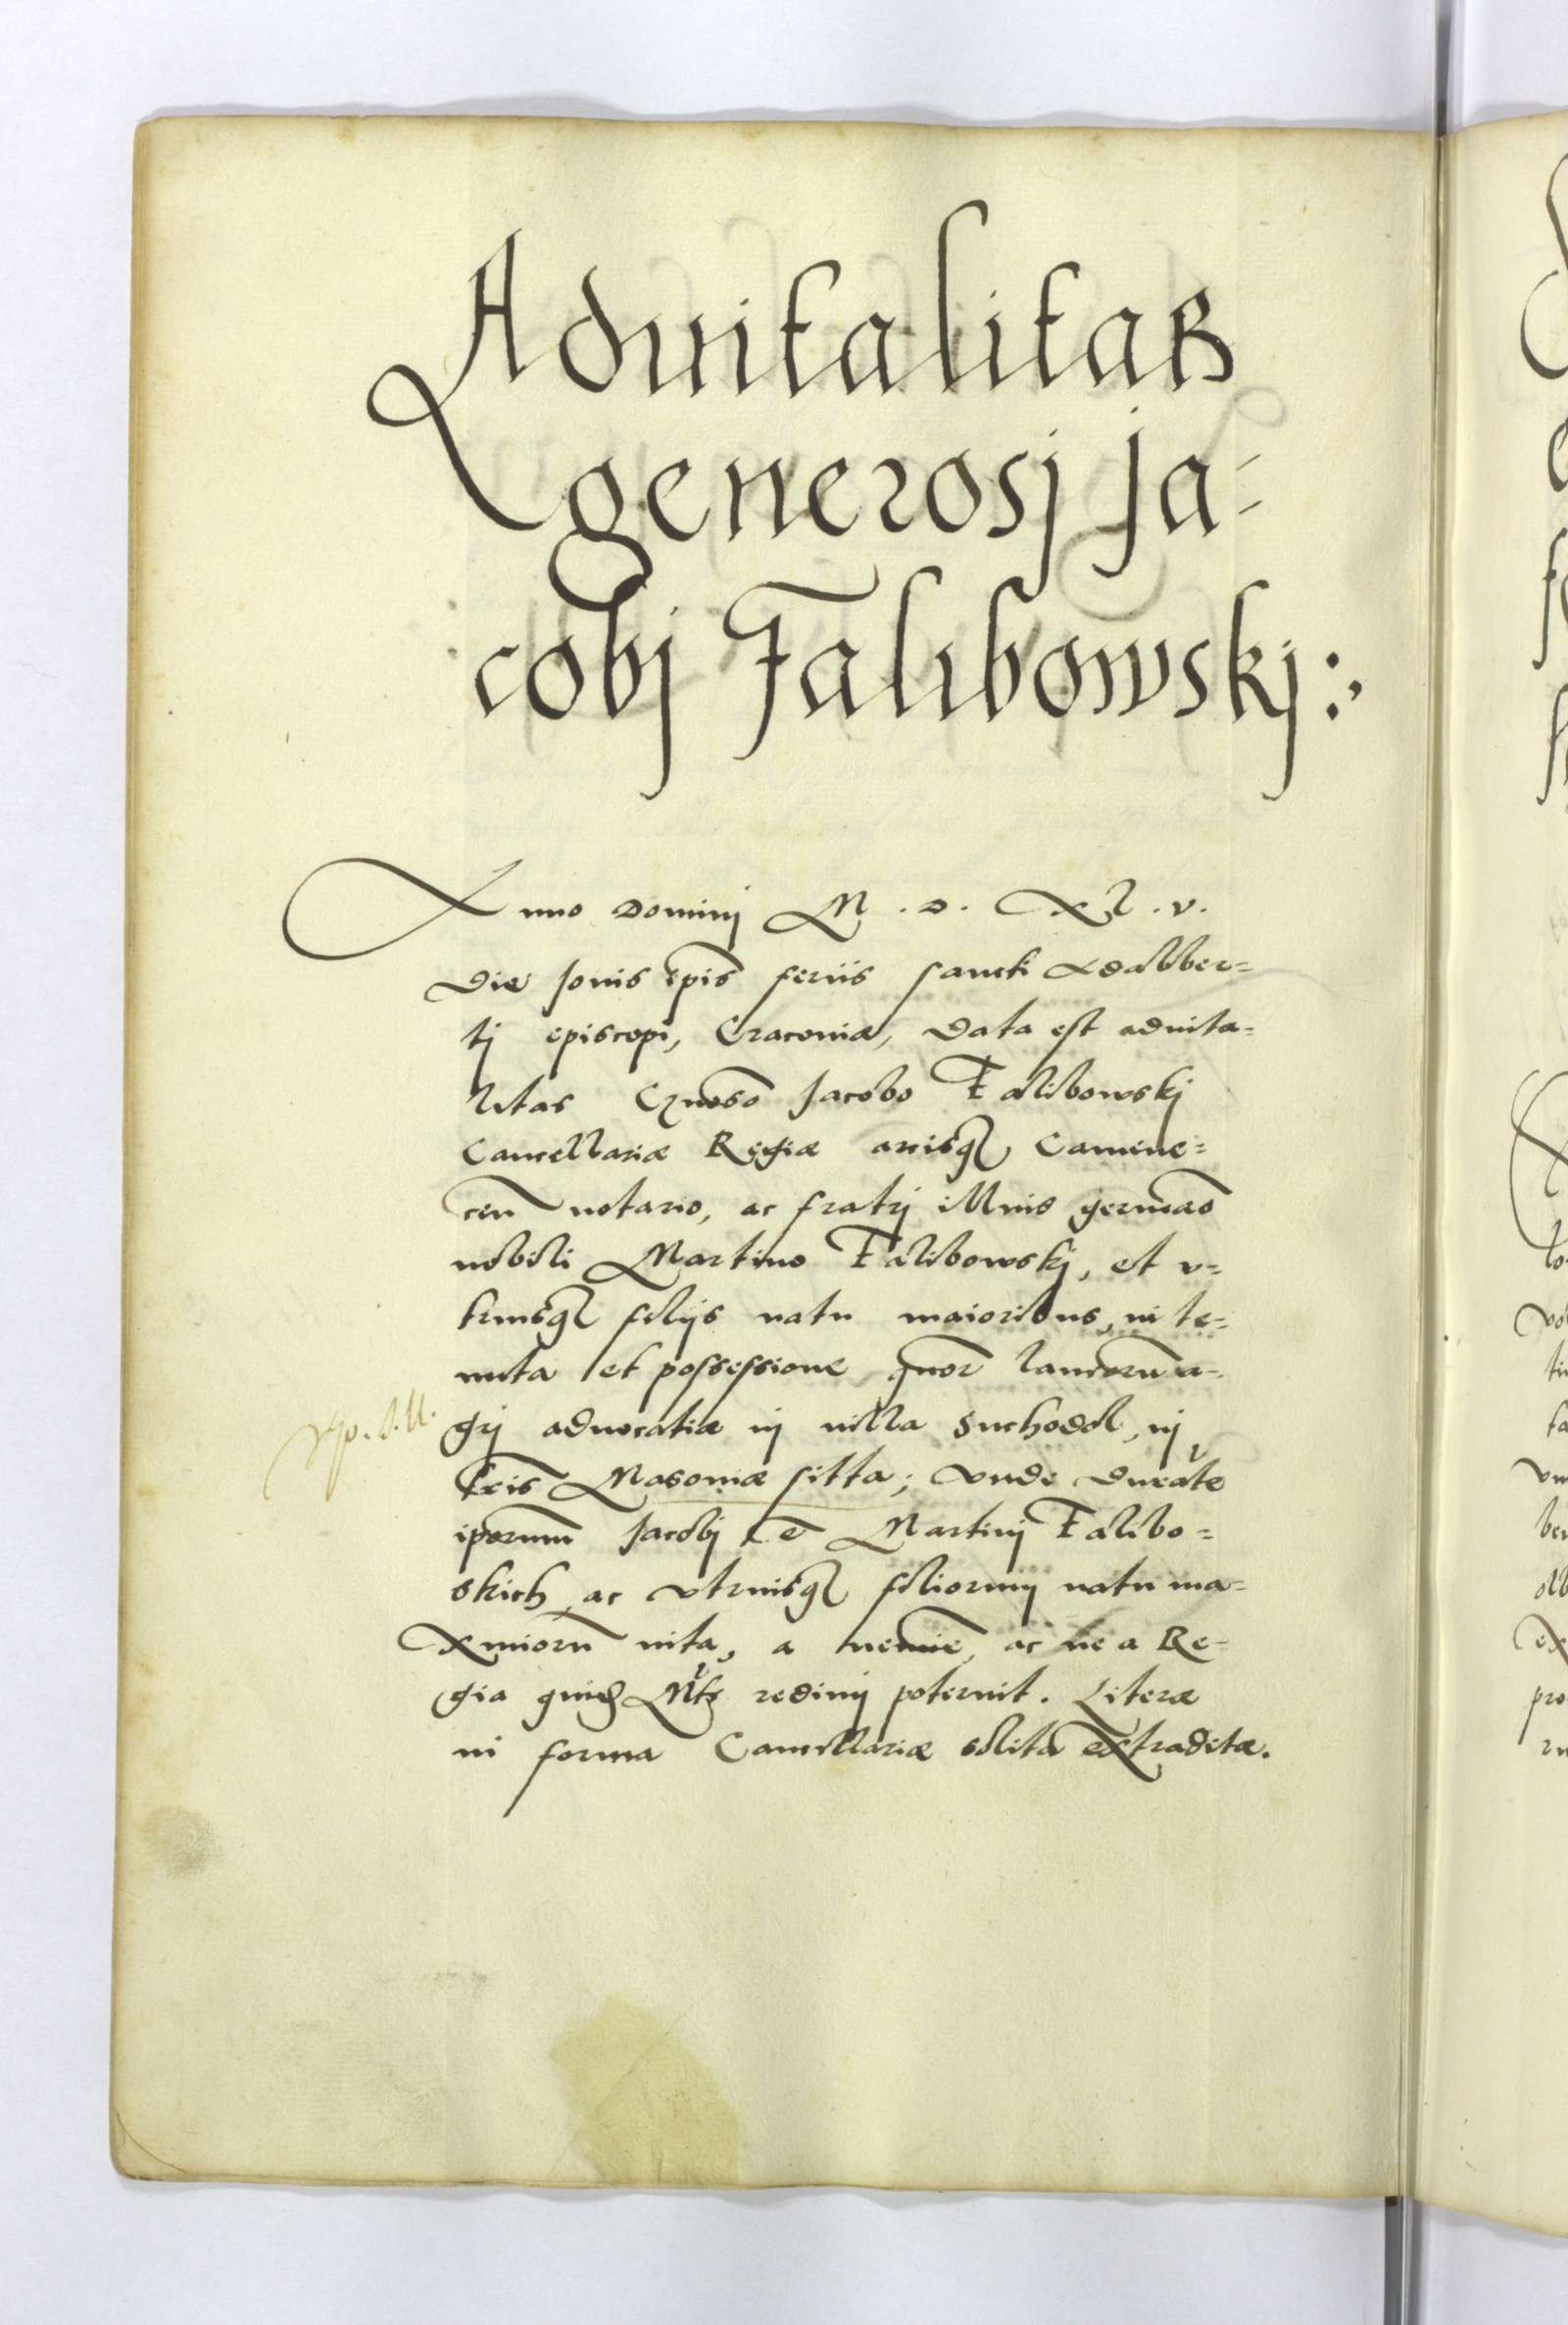 Aduitalitas
generosj Ja-
cobj Falibowskj:,
Anno Dominj M . D . Xl . v .
Die Jouis ipis feriis sancti Adalber=
tj episcopi, Cracouiæ, Data est aduita=
litas Gnoso Jacobo Falibowskj
Cancellariæ Regiæ arcisq Camene=
cen notario, ac fratrj illius germao
nobili Martino Falibowskj, et v=
triusq filijs natu maioribus, in te=
nuta et possessione quor laneorum a=
grj aduocatiæ in uilla Suchodol, in
tris Masouiæ sitta; Vnde Durate
iporum Jacobj et Martinj Falibo=
skich ac vtriusq filiorum natu ma=
xmiorum uita, a nemie, ac ne a Re=
gia quid Mte redimj poterint. Literæ
in forma Cancellariæ solita extraditæ.